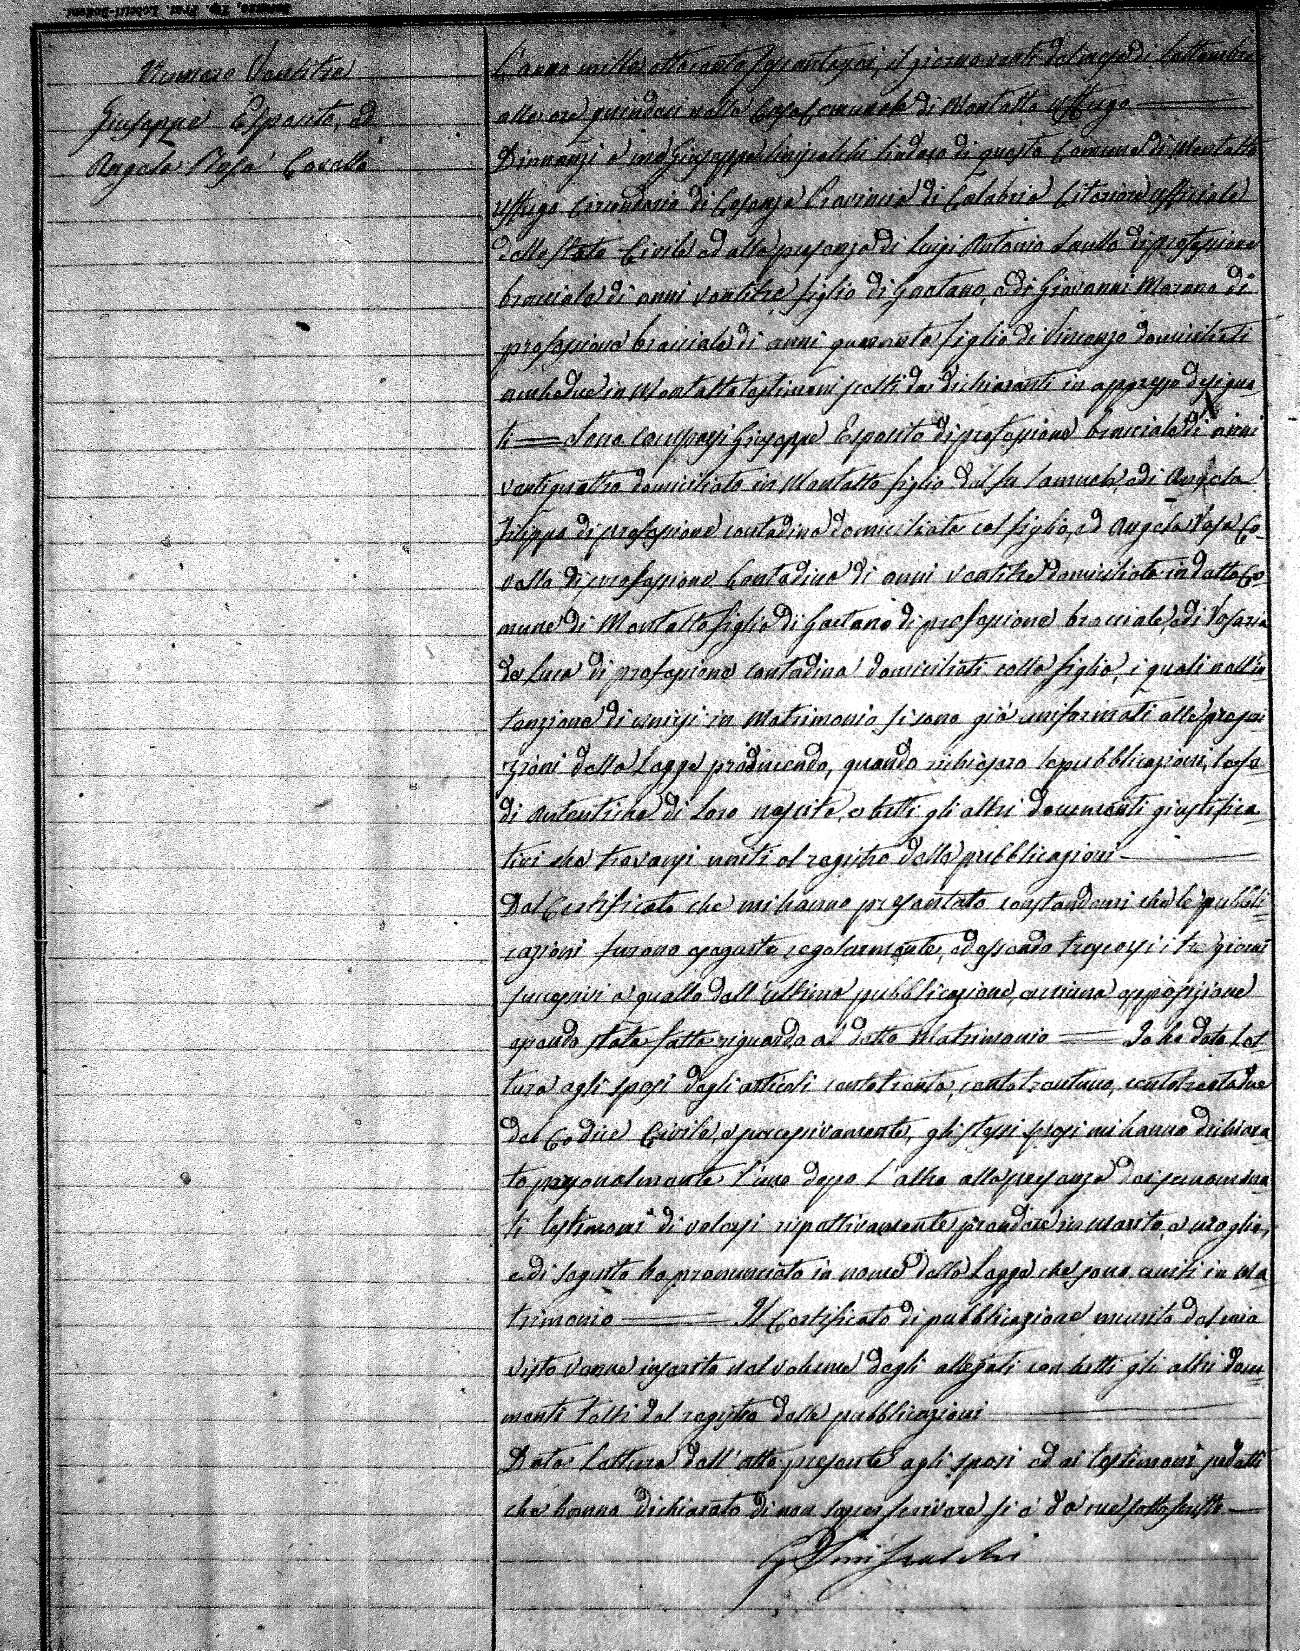 Numero Ventitre
Giuseppe Esposito, ed
Angela Rosa Covello
L'anno mille ottocento sessantasei, il giorno venti del mese di Settembre
alle ore quindici nella Casa Comunale di Montalto Uffugo
Dinnanzi a me Giuseppe Sindaco di questo Comune di Montalto
Uffugo Circondario di Cosenza Provincia di Calabria Citeriore Uffiziale
dello Stato Civile ed alla presenza di Luigi Antonio di professione
bracciale di anni ventitre figlio di Gaetano, e di Giovanni Morano di
professione bracciale di anni quaranta figlio di Vincenzo domiciliati
ambedue in Montalto testimoni scelti dai dichiaranti in appresso designa-
ti = Sono comparsi Giuseppe Esposito di professione bracciale di anni
ventiquattro domiciliato in Montalto figlio del fu Samuele, e di Angela
Filippo di professione contadina domiciliata col figlio, ed Angela Rosa Co-
vello di professione contadina di anni ventitre domiciliata in detto Co-
mune di Montalto figlia di Gaetano di professione bracciale, e di Rosaria
de Luca di professione contadina domiciliati colla figlia, i quali nell'in
tenzione di unirsi in Matrimonio si sono già uniformati alle prescri
zioni della Legge producendo, quando richiesero le pubblicazioni, le fe-
di autentiche di loro nascite, e tutti gli altri documenti giustifica-
tivi che trovansi uniti al registro delle pubblicazioni
Dal Certificato che mi hanno presentato constandomi che le pubbli-
cazioni furono eseguite regolarmente, ed essendo trascorsi i tre giorni
successivi a quello dell'ultima pubblicazione, niuna opposizione
essendo stata fatta riguardo al detto Matrimonio = Io ho dato let-
tura agli sposi degli articoli centotrenta, centotrentuno, centotrentadue
del Codice Civile, e successivamente, gli stessi sposi mi hanno dichiara
to personalmente l'uno dopo l'altro alla presenza dei sunnomina
ti testimoni di volersi rispettivamente prendere in marito, e moglie,
e di seguito ho pronunciato in nome della Legge che sono uniti in Ma
trimonio = Il Certificato di pubblicazione munito del mio
visto venne inserito nel volume degli allegati con tutti gli altri docu-
menti tolti dal registro delle pubblicazioni
Data lettura dell'atto presente agli sposi ed ai testimoni predetti
che hanno dichiarato di non saper scrivere si è da me sottoscritto